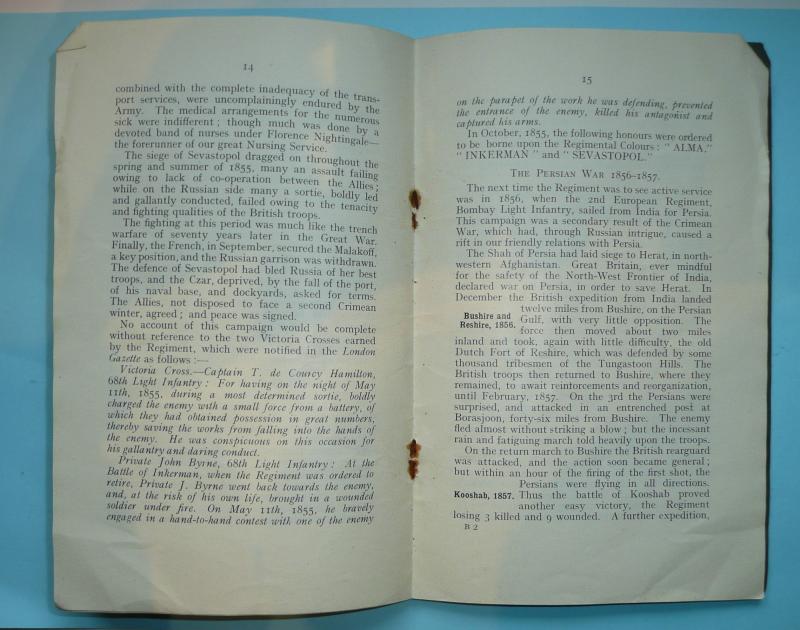 14
combined with the complete inadequacy of the trans-
port services, were uncomplainingly endured by the
Army. The medical arrangements for the numerous
sick were indifferent; though much was done by a
devoted band of nurses under Florence Nightingale—
the forerunner of our great Nursing Service.
The siege of Sevastopol dragged on throughout the
spring and summer of 1855, many an assault failing
owing to lack of co-operation between the Allies;
while on the Russian side many a sortie, boldly led
and gallantly conducted, failed owing to the tenacity
and fighting qualities of the British troops.
The fighting at this period was much like the trench
warfare of seventy years later in the Great War.
Finally, the French, in September, secured the Malakoff,
a key position, and the Russian garrison was withdrawn.
The defence of Sevastopol had bled Russia of her best
troops, and the Czar, deprived, by the fall of the port,
of his naval base, and dockyards, asked for terms.
The Allies, not disposed to face a second Crimean
winter, agreed; and peace was signed.
No account of this campaign would be complete
without reference to the two Victoria Crosses earned
by the Regiment, which were notified in the London
Gazette as follows:—
Victoria Cross.—Captain T. de Courcy Hamilton,
68th Light Infantry: For having on the night of May
11th, 1855, during a most determined sortie, boldly
charged the enemy with a small force from a battery, of
which they had obtained possession in great numbers,
thereby saving the works from falling into the hands of
the enemy. He was conspicuous on this occasion for
his gallantry and daring conduct.
Private John Byrne, 68th Light Infantry: At the
Battle of Inkerman, when the Regiment was ordered to
retire, Private J. Byrne went back towards the enemy,
and, at the risk of his own life, brought in a wounded
soldier under fire. On May 11th, 1855, he bravely
engaged in a hand-to-hand contest with one of the enemy
15
on the parapet of the work he was defending, prevented
the entrance of the enemy, killed his antagonist and
captured his arms.
In October, 1855, the following honours were ordered
to be borne upon the Regimental Colours: "ALMA,"
"INKERMAN" and "SEVASTOPOL."
THE PERSIAN WAR 1856-1857.
The next time the Regiment was to see active service
was in 1856, when the 2nd European Regiment,
Bombay Light Infantry, sailed from India for Persia.
This campaign was a secondary result of the Crimean
War, which had, through Russian intrigue, caused a
rift in our friendly relations with Persia.
The Shah of Persia had laid siege to Herat, in north-
western Afghanistan. Great Britain, ever mindful
for the safety of the North-West Frontier of India,
declared war on Persia, in order to save Herat. In
December the British expedition from India landed
twelve miles from Bushire, on the Persian
Bushire and Gulf, with very little opposition. The
Reshire, 1856. force then moved about two miles
inland and took, again with little difficulty, the old
Dutch Fort of Reshire, which was defended by some
thousand tribesmen of the Tungastoon Hills. The
British troops then returned to Bushire, where they
remained, to await reinforcements and reorganization,
until February, 1857. On the 3rd the Persians were
surprised, and attacked in an entrenched post at
Borasjoon, forty-six miles from Bushire. The enemy
fled almost without striking a blow; but the incessant
rain and fatiguing march told heavily upon the troops.
On the return march to Bushire the British rearguard
was attacked, and the action soon became general;
but within an hour of the firing of the first shot, the
Persians were flying in all directions.
Kooshab, 1857. Thus the battle of Kooshab proved
another easy victory, the Regiment
losing 3 killed and 9 wounded. A further expedition,
B 2